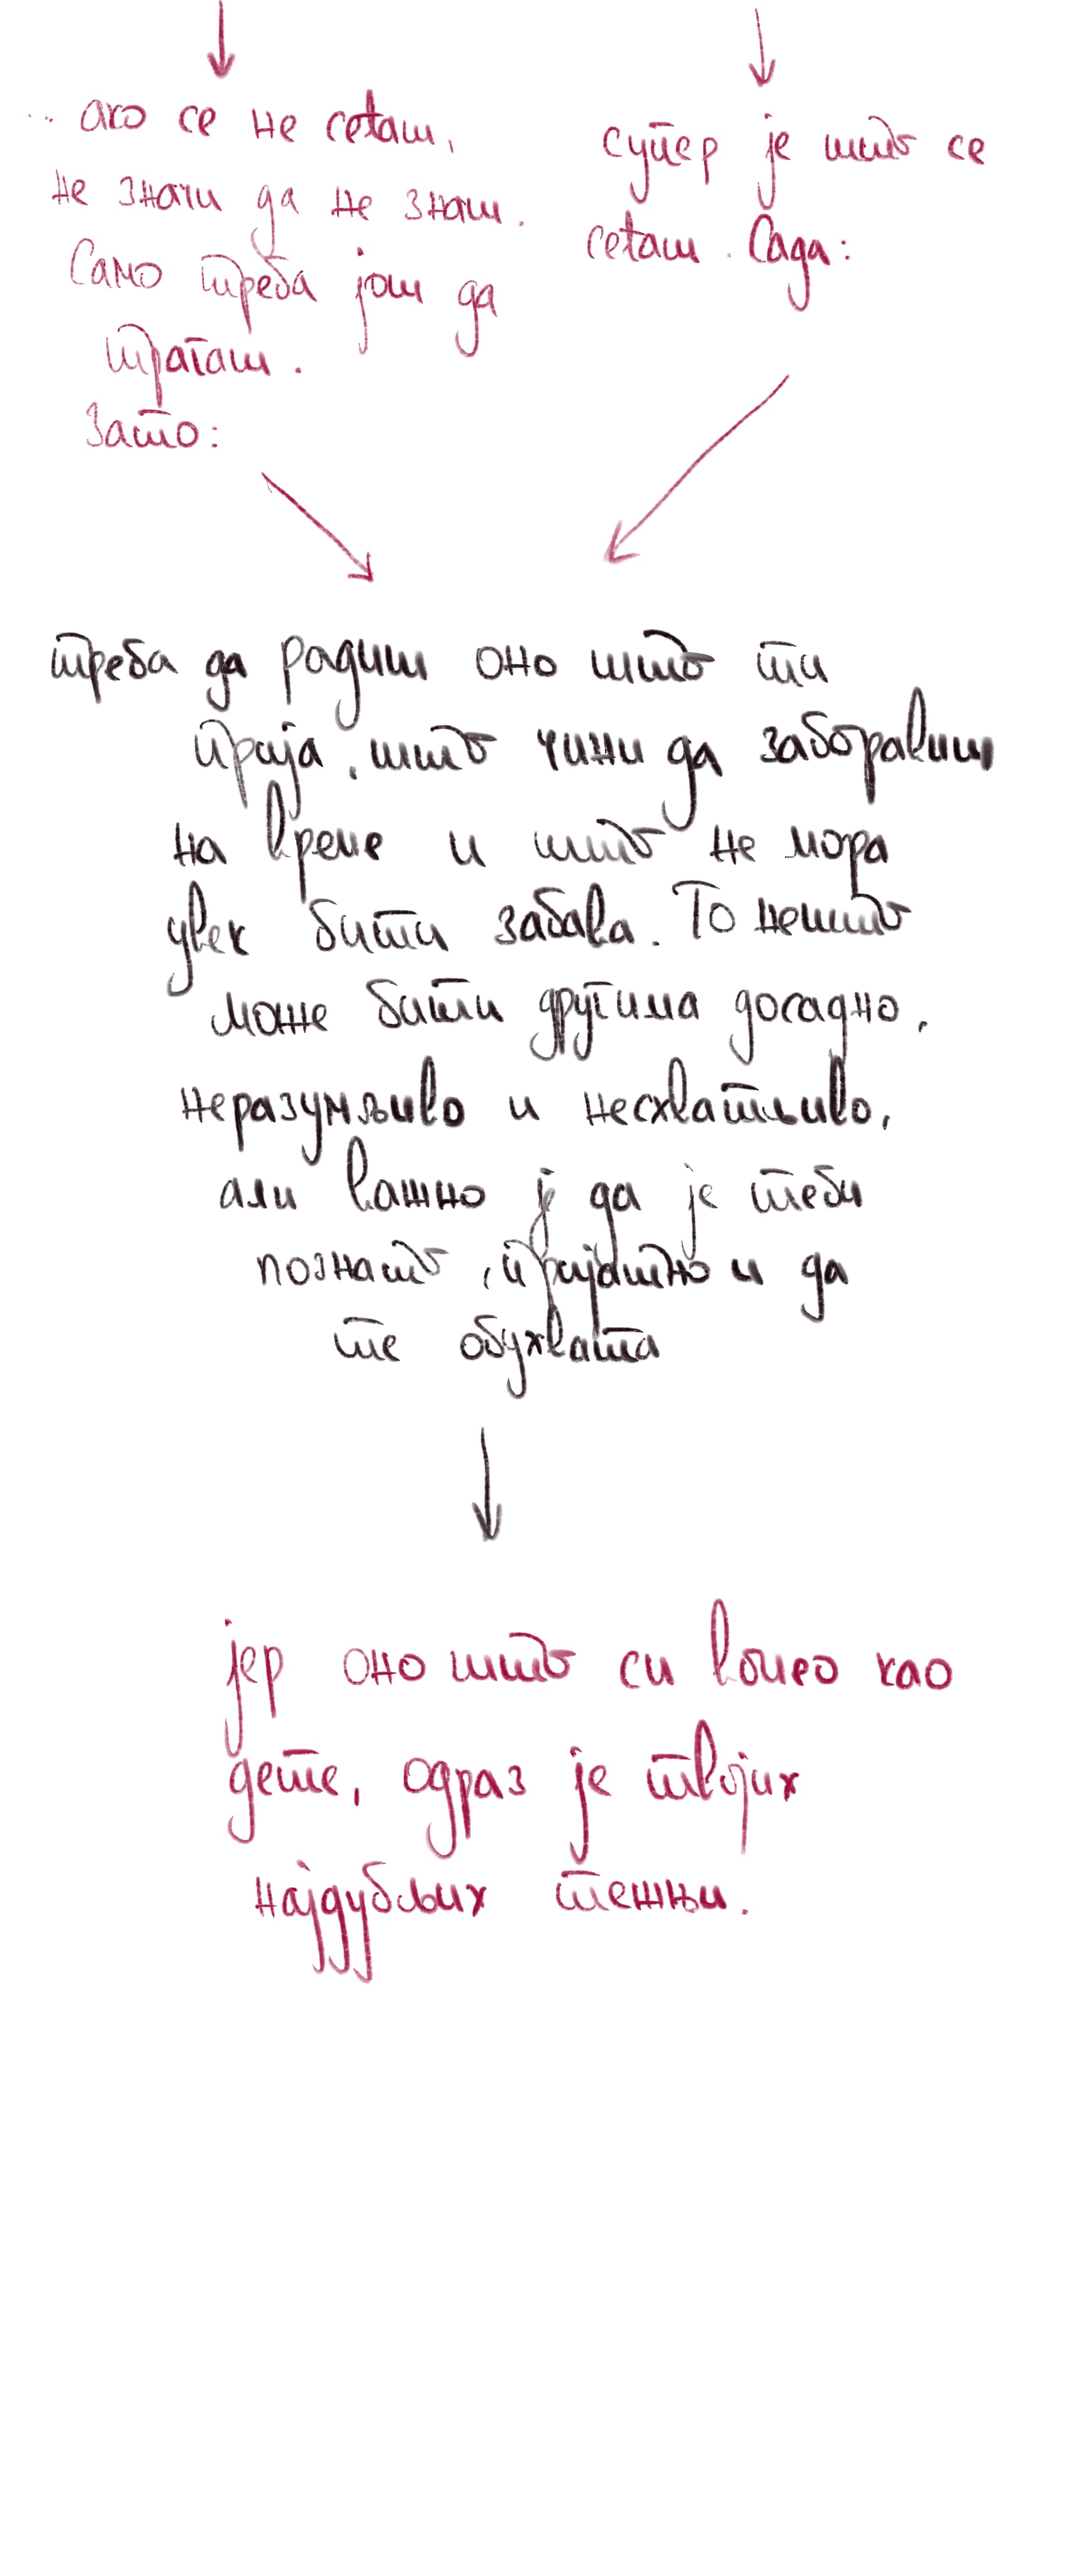 .. ако се не сећаш,
не значи да не знаш.
Само треба још да
трагаш.
Зато:
супер је што се
сећаш. Сада:
треба да радиш оно што ти
прија, што чини да заборавиш
на време и што не мора
увек бити забава. То нешто
може бити другима досадно,
неразумљиво и несхватљиво,
али важно је да је теби
познато, пријатно и да
те обухвата
јер оно што си волео као
дете, одраз је твојих
најдубљих тежњи.